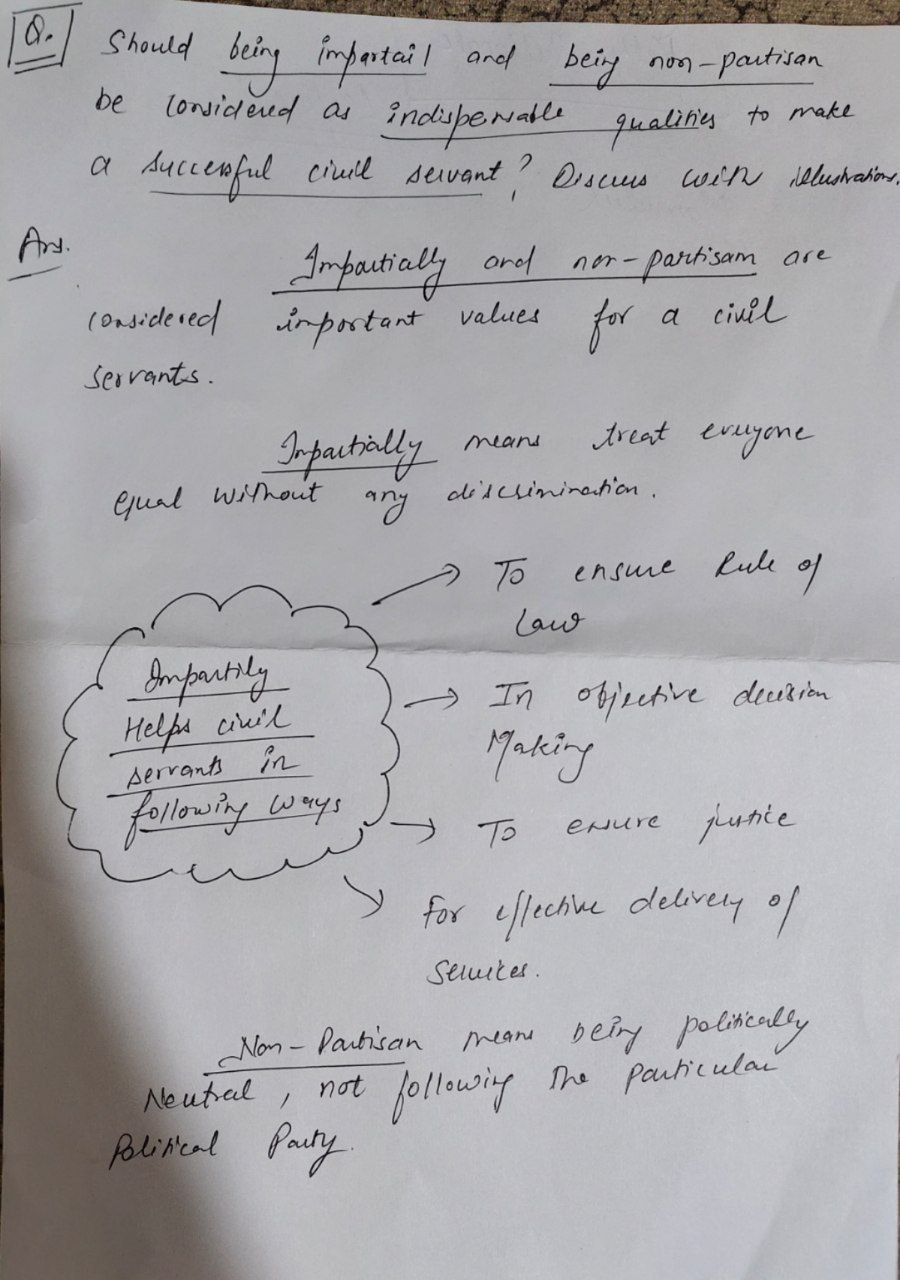 Q. Should being impartail and being non-partisan
be considered as indispensable qualities to make
a successful civil servant? Discuss with illustrations.
Ans.
Impartially and non-partisam are
considered important values for a civil
servants.
Impartially means treat everyone
equal without any discrimination.
Impartily
Helps civil
servants in
following ways
→ To ensure Rule of
Law
→ In objective decision
Making
→ To ensure justice
→ For effective delivery of
Services.
Non-Partisan means being politically
Neutral, not following the particular
Political Party.